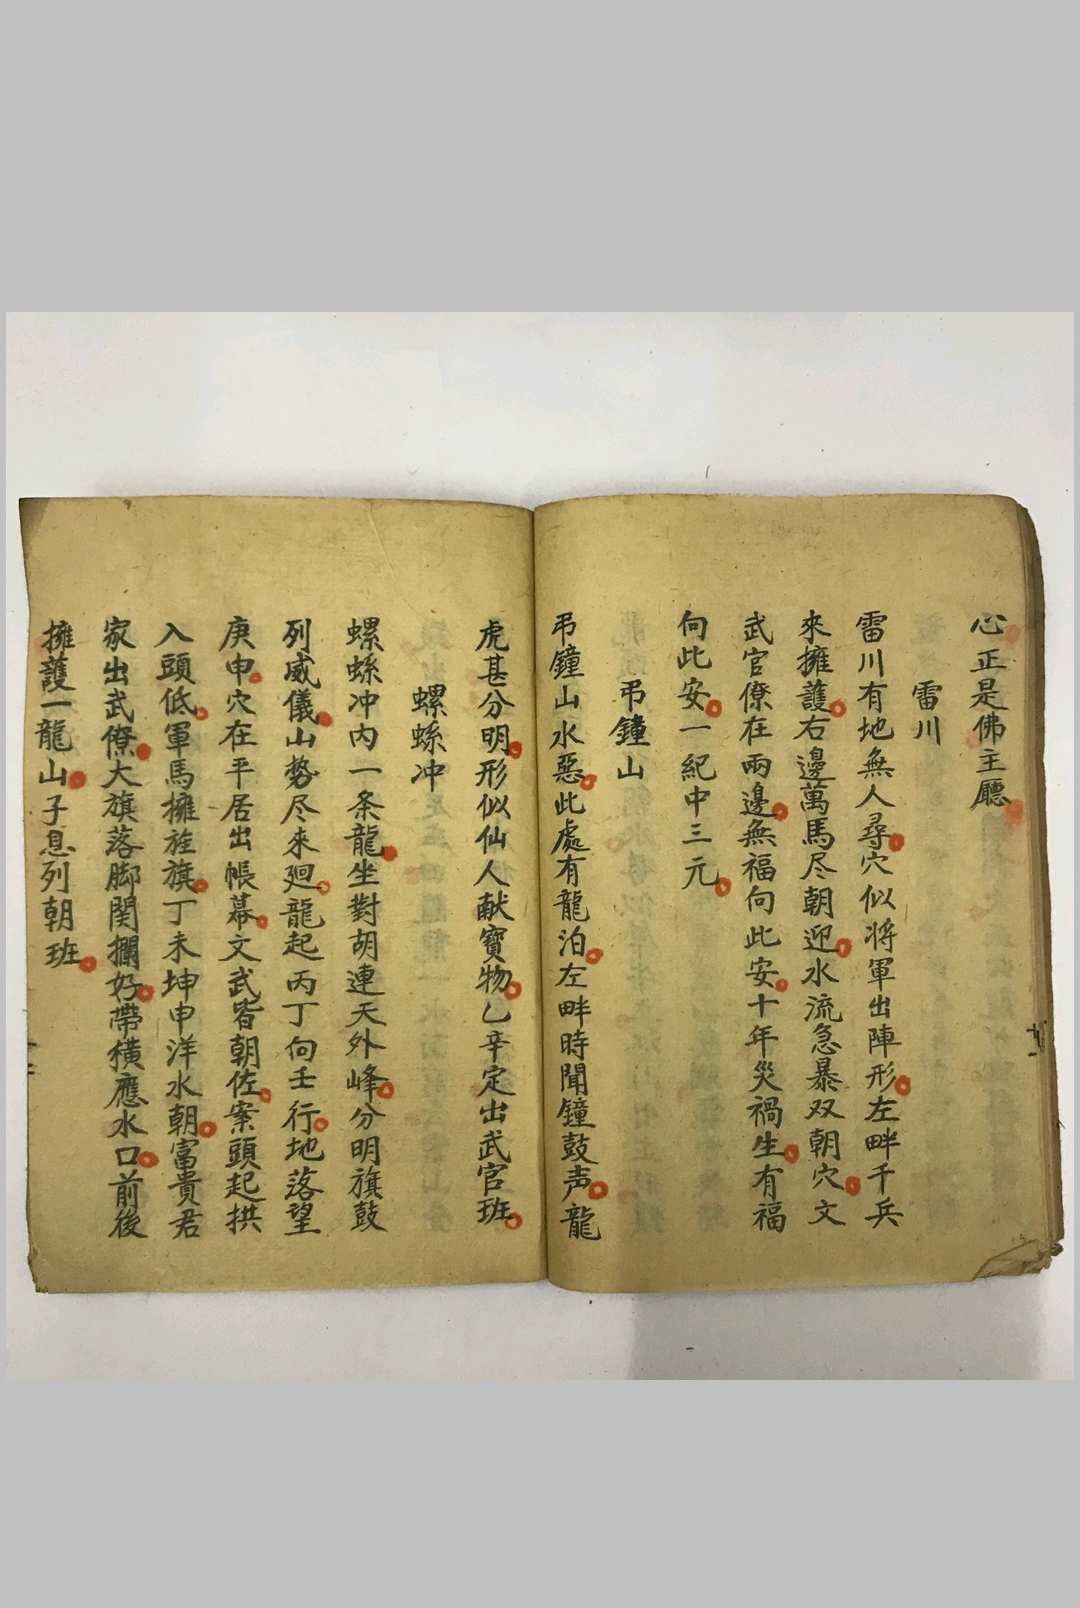 心正是佛主廳
雷川
雷川有地無人尋穴似将軍出陣形左畔千兵
來擁護右邊萬馬尽朝迎水流急暴双朝穴文
武官僚在兩邊無福向此安十年災禍生有福
向此安一紀中三元
弔鐘山
弔鐘山水惡此處有龍泊左畔時聞鐘鼓声龍
虎甚分明形似仙人献寳物乙辛定出武官班
螺螄冲
螺螄冲内一条龍坐對胡連天外峰分明旗鼓
列威儀山勢尽來廻龍起丙丁向壬行地落望
庚申穴在平居出帳幕文武皆朝佐案頭起拱
入頭低軍馬擁旌旗丁未坤申洋水朝富貴君
家出武僚大旗落脚関攔好帶横應水口前後
擁護一龍山子息列朝班